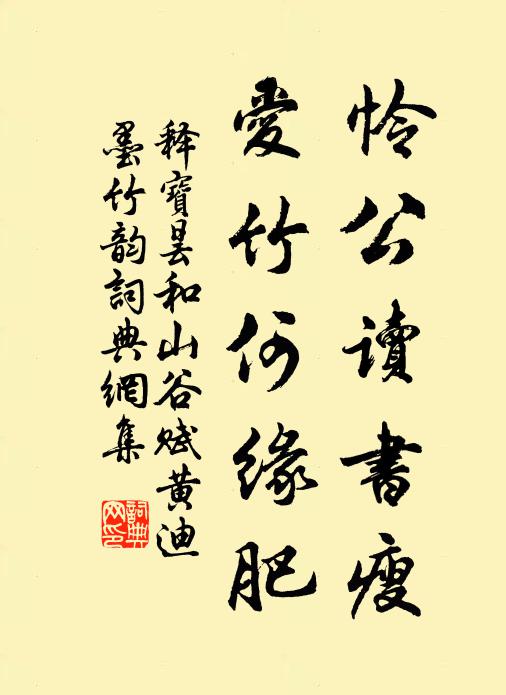 怜公读書瘦
愛竹何緣肥
释寶昙和山谷赋黄迪
墨竹韵詞典網集
詞典
网印